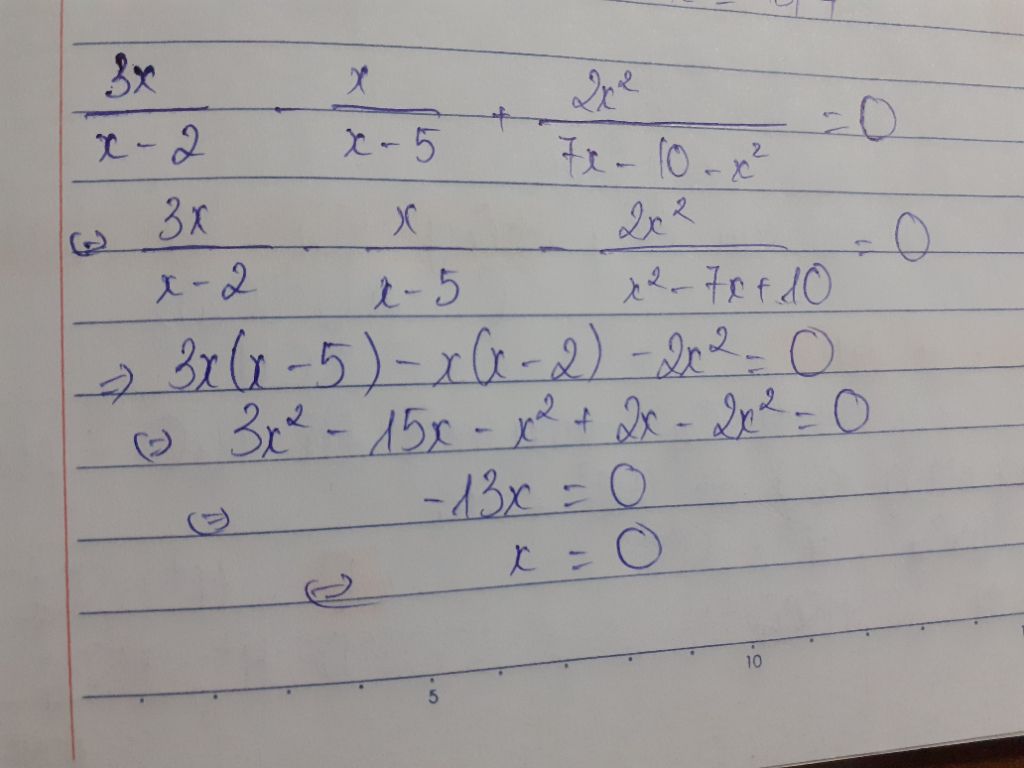 3x/(x - 2) - x/(x - 5) + 2x²/(7x - 10 - x²) = 0
⇔ 3x/(x - 2) - x/(x - 5) - 2x²/(x² - 7x + 10) = 0
⇒ 3x(x - 5) - x(x - 2) - 2x² = 0
⇔ 3x² - 15x - x² + 2x - 2x² = 0
⇔ -13x = 0
⇔ x = 0
5 10